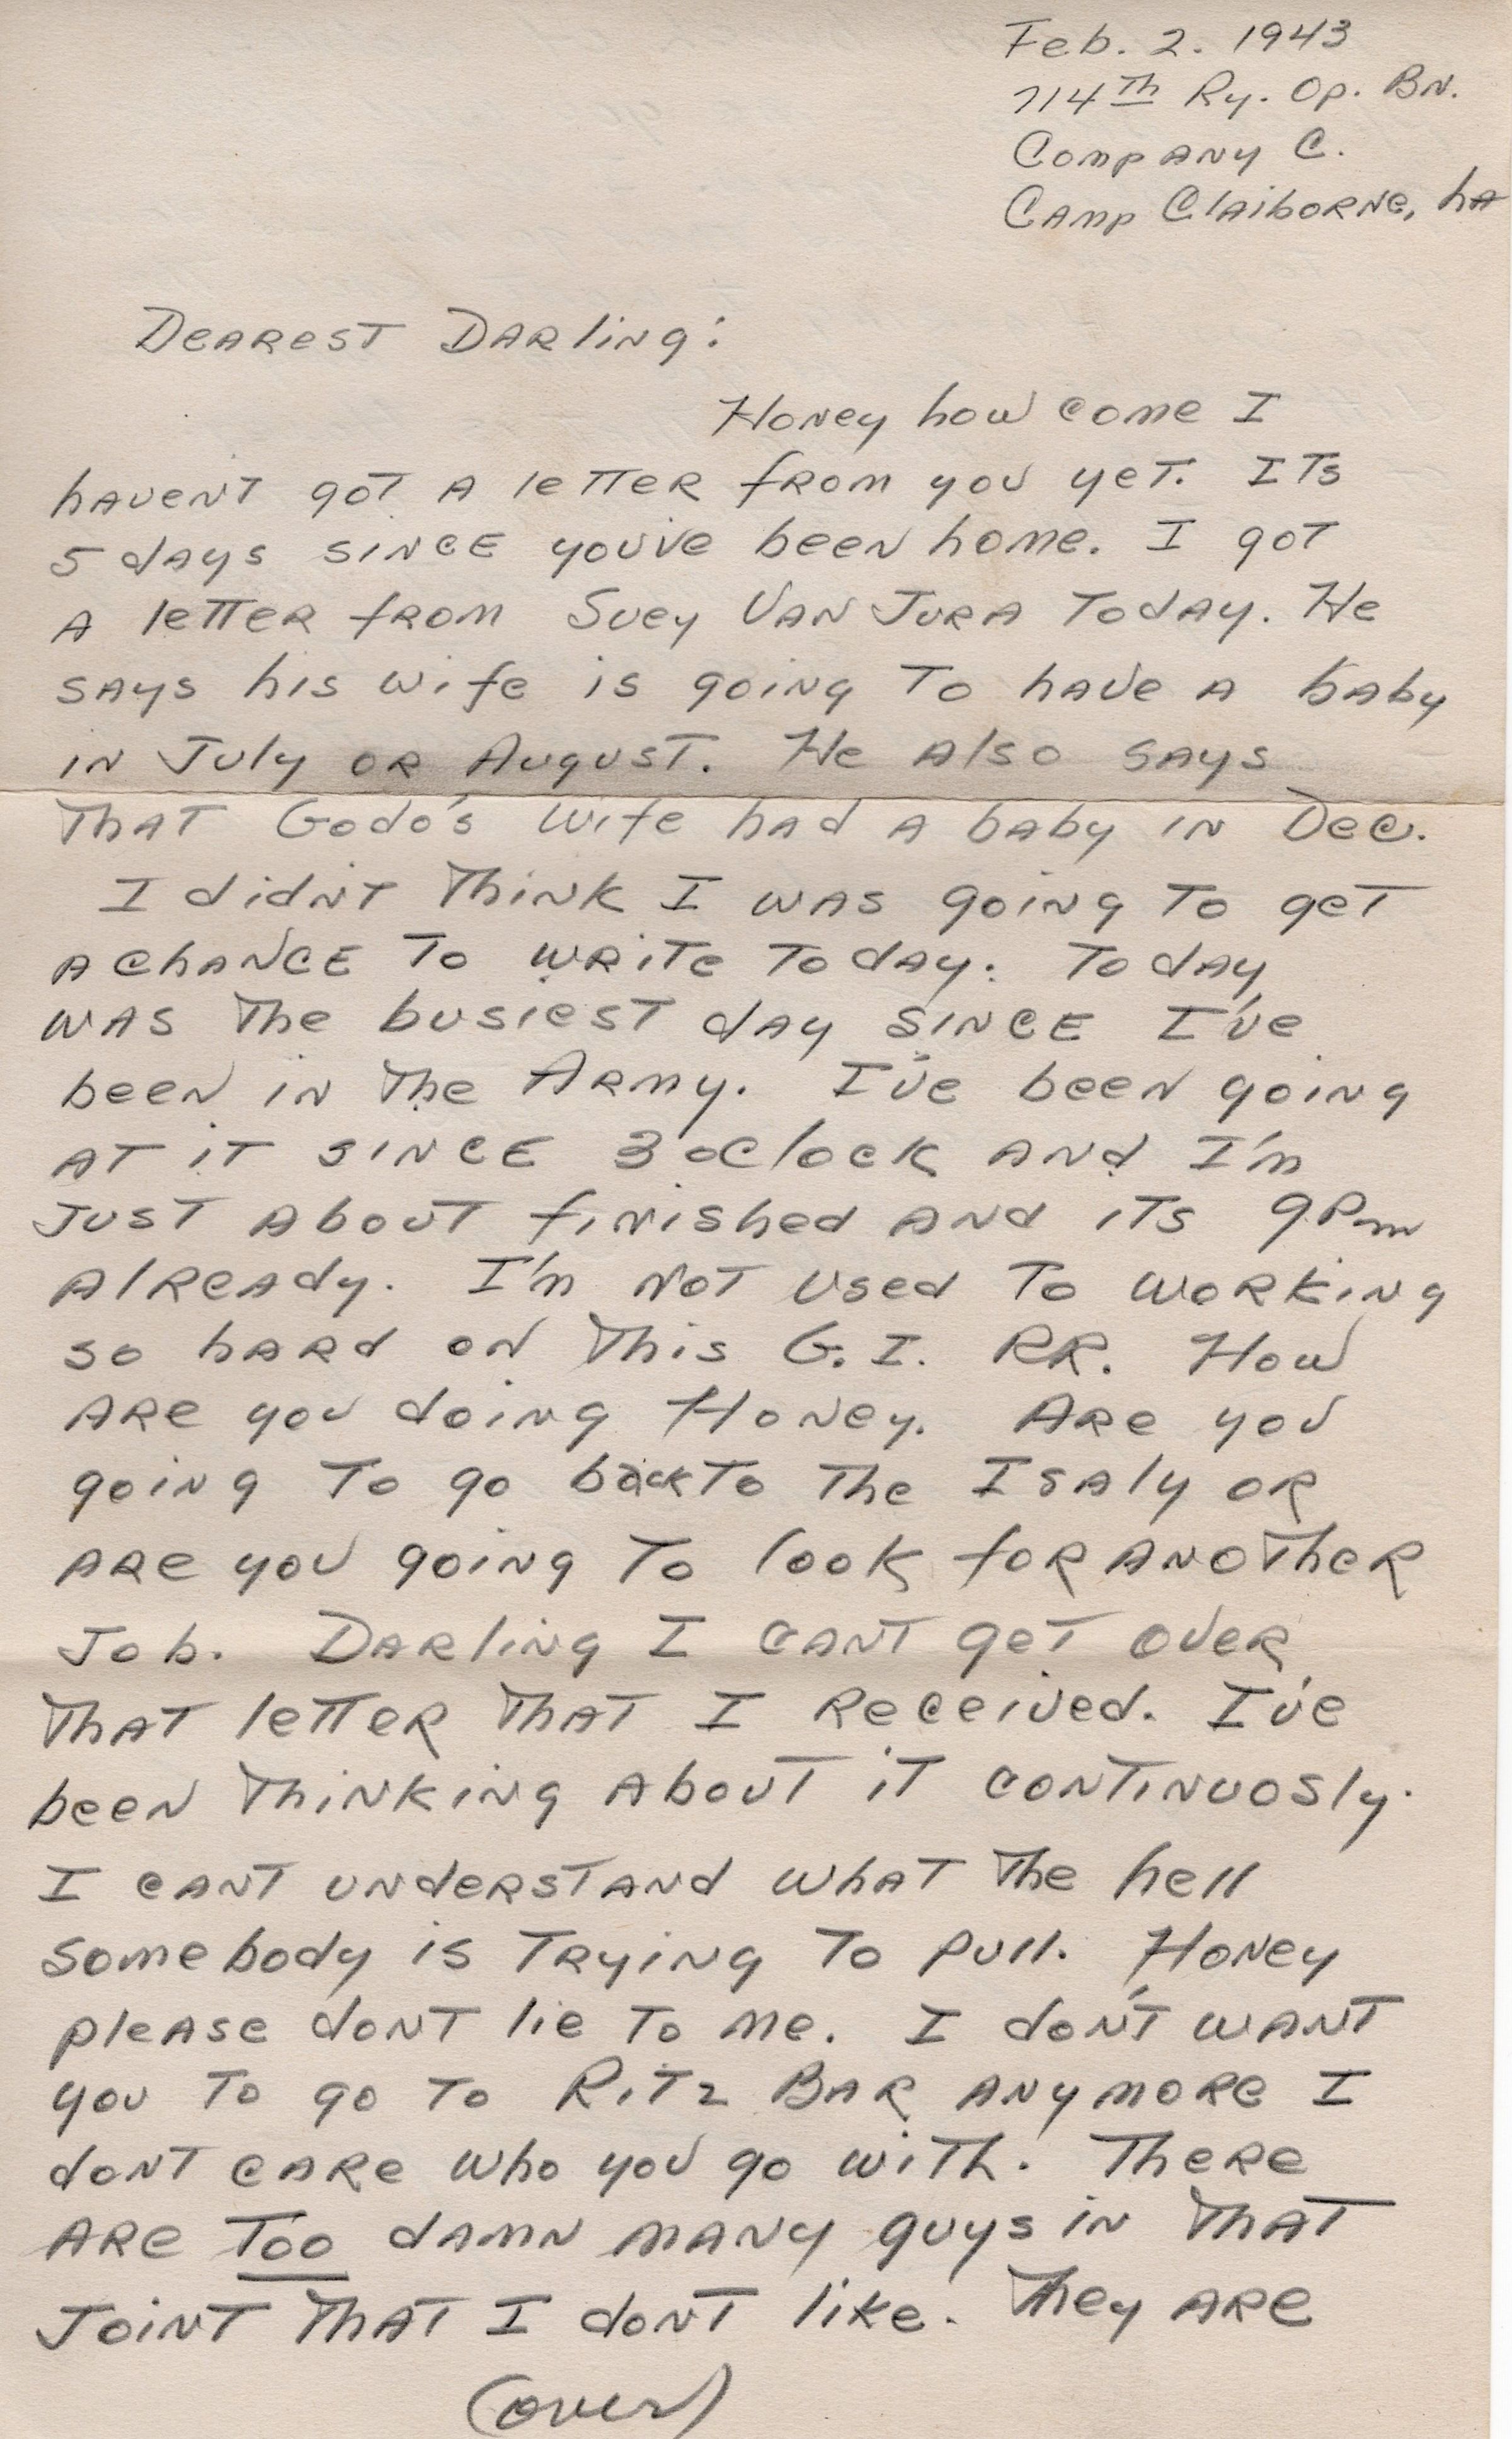 Feb. 2. 1943
714th Ry. Op. Bn.
Company C.
Camp Claiborne, La
Dearest Darling:
Honey how come I
haven't got a letter from you yet. Its
5 days since you've been home. I got
a letter from Suey Van Jura today. He
says his wife is going to have a baby
in July or August. He also says
that Godo's wife had a baby in Dec.
I didn't think I was going to get
a chance to write today. Today
was the busiest day since I've
been in the Army. I've been going
at it since 3 oclock and I'm
just about finished and its 9 Pm
already. I'm not used to working
so hard on this G.I. RR. How
are you doing Honey. Are you
going to go back to the Isaly or
are you going to look for another
job. Darling I cant get over
that letter that I received. I've
been thinking about it continuosly.
I cant understand what the hell
somebody is trying to pull. Honey
please dont lie to me. I don't want
you to go to Ritz Bar anymore I
dont care who you go with. There
are too damn many guys in that
joint that I dont like. They are
(over)